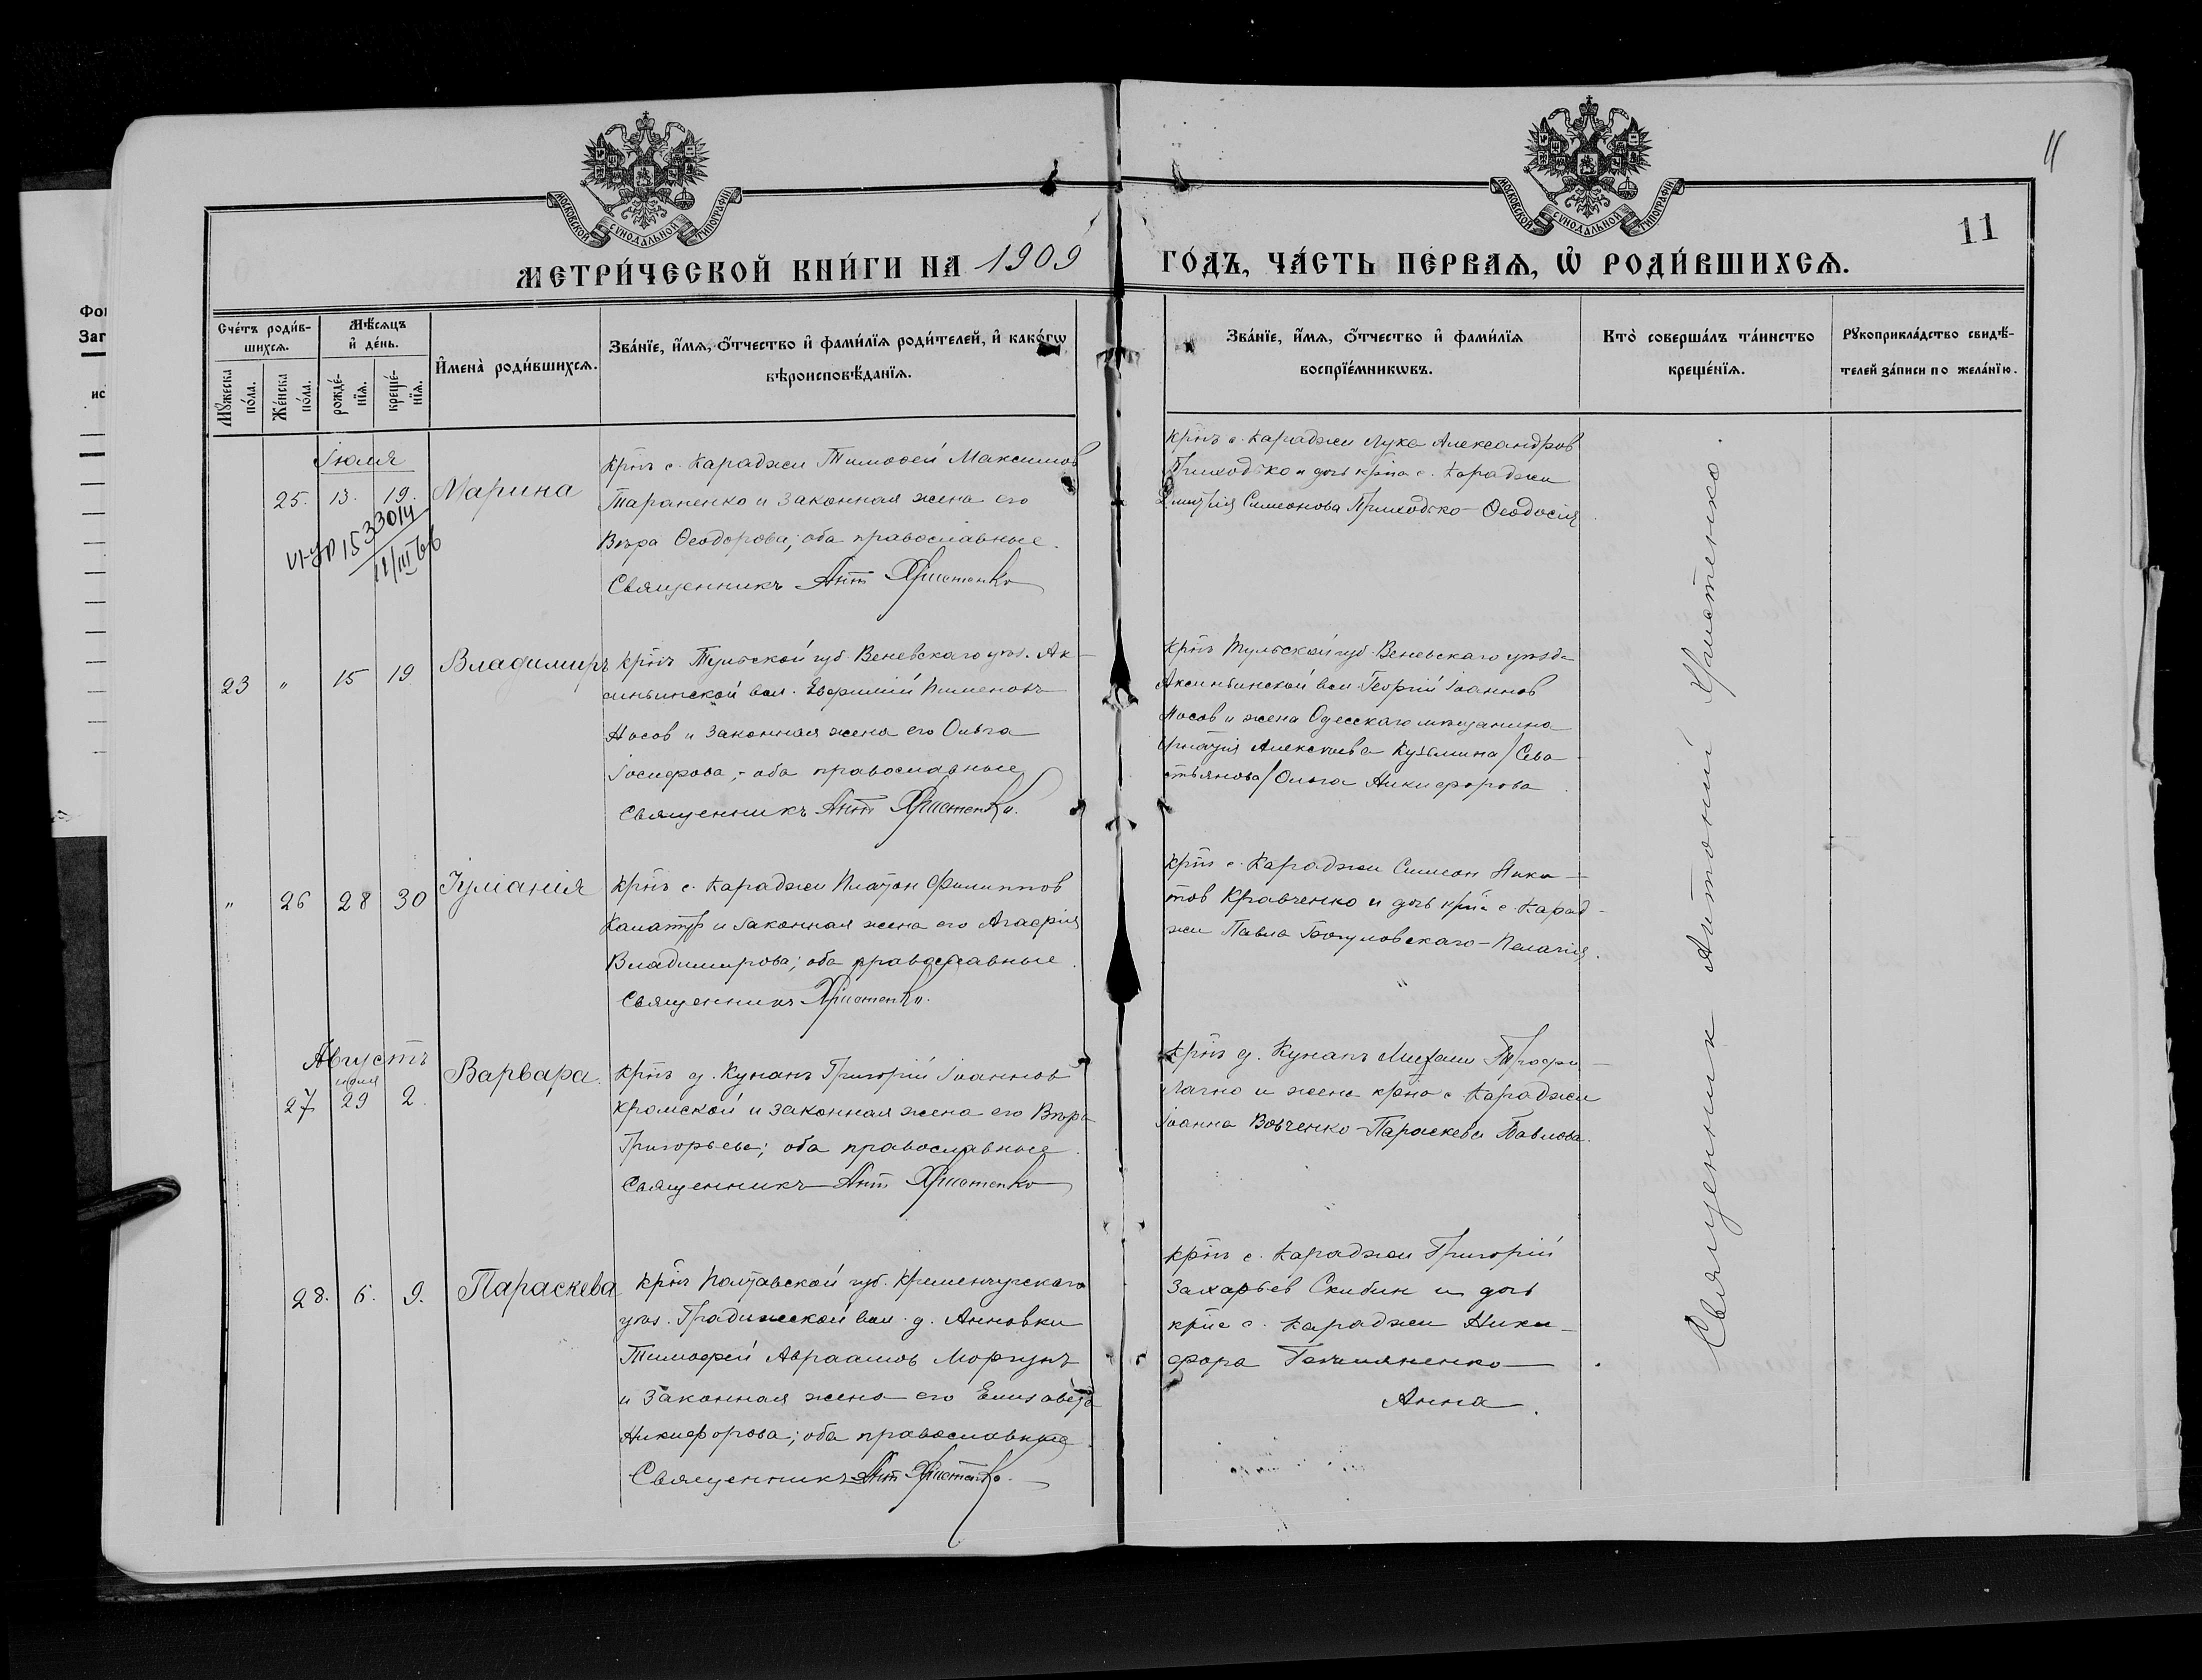 11
11
МОСКОВСКОЙ СѴНОДАЛЬНОЙ ТИПОГРАФІИ
МОСКОВСКОЙ СѴНОДАЛЬНОЙ ТИПОГРАФІИ
МЕТРИ́ЧЕСКОЙ КНИ́ГИ НА 1909
ГО́ДЪ, ЧА́СТЬ ПЕ́РВАѦ, Ѡ҆ РОДИ́ВШИХСѦ.
Сче́тъ роди́в-
шихсѧ.
Мꙋ́жеска
по́ла.
Же́нска
по́ла.
Мѣ́сѧцъ
и҆ де́нь.
рожде́-
нїѧ.
креще́-
нїѧ.
И҆мена̀ роди́вшихсѧ.
Зва́нїе, и҆́мѧ, ѻ҆́тчество и҆ фами́лїѧ роди́телей, и҆ како́гѡ
вѣроисповѣ́данїѧ.
Зва́нїе, и҆́мѧ, ѻ҆́тчество и҆ фами́лїѧ
воспрїе́мникѡвъ.
Кто̀ соверша́лъ та́инство
креще́нїѧ.
Рꙋкоприкла́дство свидѣ́-
телей за́писи по жела́нїю.
Іюля
25. 13. 19. Марина
Крпъ с. Караджи Тимоѳей Максимов
Тараненко и законная жена его
Вѣра Ѳеодорова; оба православные.
Священникъ Ант Христенко
Крпъ с. Караджи Лука Александров
Приходько и дочь крпа с. Караджи
Димитрія Симеонова Приходько - Ѳеодосія
1533014
11/III 66
23 " 15 19 Владимиръ
Крпъ Тульской губ. Веневскаго уѣз. Ак-
синьинской вол. Евфимій Пименовъ
Носов и законная жена его Ольга
Іосифова; - оба православные
Священникъ Ант Христенко.
Крпъ Тульской губ. Веневскаго уѣзда
Аксиньинской вол. Георгій Іоаннов
Носов и жена Одесскаго мѣщанина
Игнатія Алексѣева Кузьмина /Сева-
стьянова/ Ольга Никифорова
" 26 28 30 Іуліанія
Крпъ с. Караджи Платон Филиппов
и законная жена его Агафія
Владимирова; оба православные.
Священникъ Христенко.
Крпъ с. Караджи Симеон Ники-
тов Кравченко и дочь крпа с. Карад-
жи Павла - Пелагія.
Августъ
27 іюля 29 2. Варвара.
Крпъ д. Кунанъ Григорій Іоаннов
Кромской и законная жена его Вѣра
Григорьева; оба православные.
Священникъ Ант Христенко
Крпъ д. Кунанъ Михаил
и жена крпа с. Караджи
Іоанна Вовченко - Параскева Павлова.
28. 6. 9. Параскева
Крпъ Полтавской губ. Кременчугскаго
уѣз. Градижской вол. д. Анновки
Тимофей Авраамов Моргунъ
и законная жена его Елизавета
Никифорова; оба православные.
Священникъ Ант Христенко.
Крпъ с. Караджи Григорій
Захарьев Скибин и дочь
крпа с. Караджи Ники-
фора
Анна.
Священник Антоній Христенко.